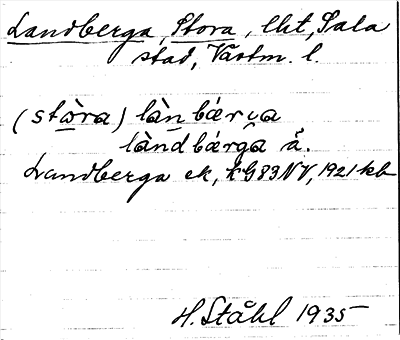 Landberga, Stora, lht, Sala
stad, Västm. l.
(stòra) làn bár ya
lànd bárga å.
Landberga ek, kG83NV, 1921 kb
H. Ståhl 1935